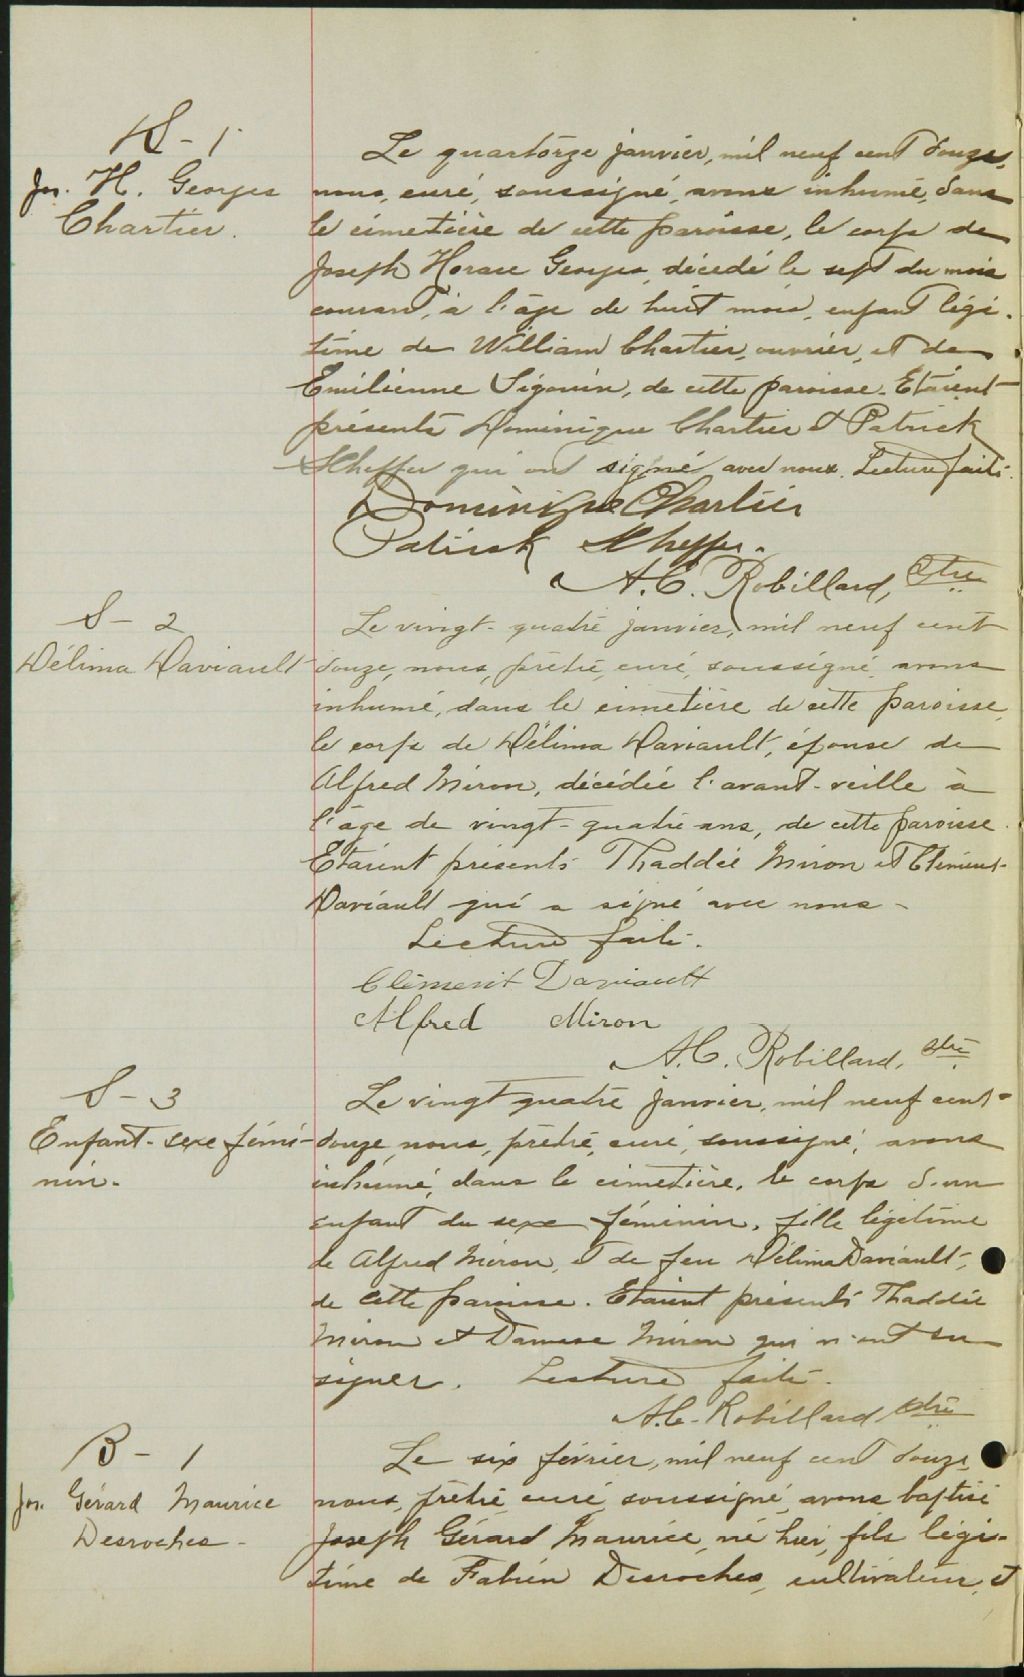 S - 1
Jos. H. Georges
Chartier.
Le quatorze janvier, mil neuf cent douze,
nous, curé, soussigné, avons inhumé, dans
le cimetière de cette paroisse, le corps de
Joseph Horace Georges, décédé le sept du mois
courant, à l'âge de huit mois, enfant légi-
time de William Chartier, ouvrier, et de
Emilienne Sigouin, de cette paroisse. Etaient
présents Dominique Chartier et Patrick
Scheffer qui ont signé avec nous. Lecture faite.
Dominique Chartier
Patrick Scheffer.
A. C. Robillard, Ptre
S - 2
Délima Daviault
Le vingt-quatre janvier, mil neuf cent
douze, nous, prêtre, curé, soussigné, avons
inhumé, dans le cimetière de cette paroisse,
le corps de Délima Daviault, épouse de
Alfred Miron, décédée l'avant-veille à
l'âge de vingt-quatre ans, de cette paroisse.
Etaient présents Thaddée Miron et Clément
Daviault qui a signé avec nous -
Lecture faite.
Clément Daviault
Alfred Miron
A. C. Robillard, Ptre
S - 3
Enfant-sexe fémi-
nin.
Le vingt quatre janvier, mil neuf cent
douze, nous, prêtre, curé, soussigné, avons
inhumé, dans le cimetière, le corps d'un
enfant du sexe féminin, fille légitime
de Alfred Miron, et de feu Délima Daviault,
de cette paroisse. Etaient présents Thaddée
Miron et Damase Miron qui n'ont su
signer. Lecture faite.
A. C. Robillard Ptre
B - 1
Jos. Gérard Maurice
Desroches -
Le six février, mil neuf cent douze,
nous, prêtre, curé, soussigné, avons baptisé
Joseph Gérard Maurice, né hier, fils légi-
time de Fabien Desroches, cultivateur, et